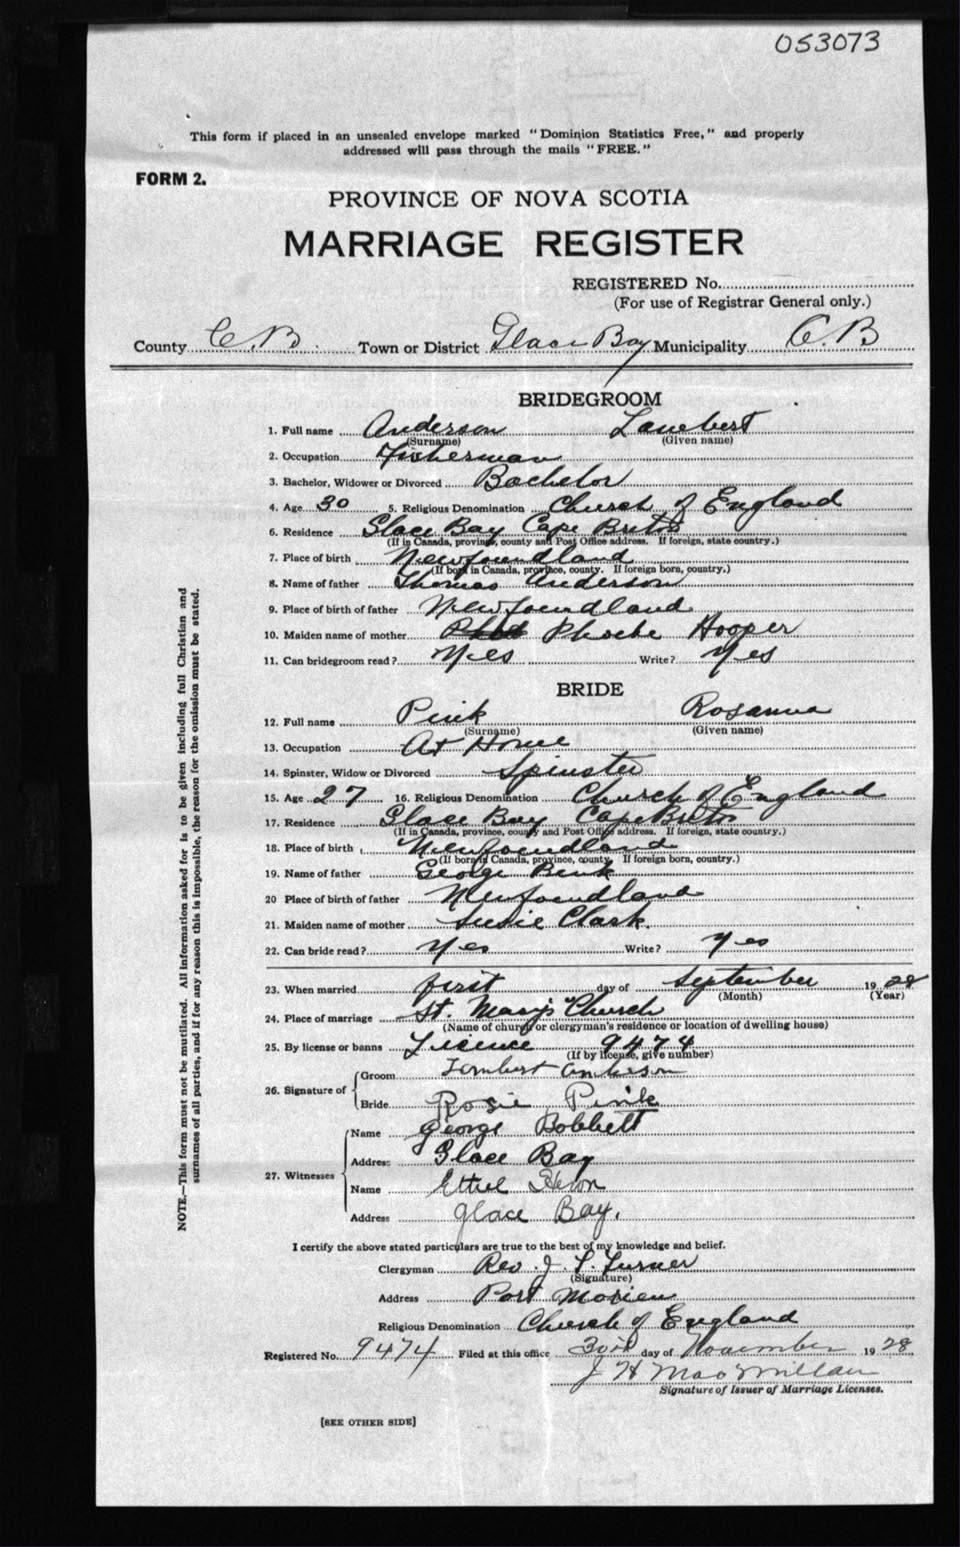 053073
This form if placed in an unsealed envelope marked "Dominion Statistics Free," and properly
addressed will pass through the mails "FREE."
FORM 2.
PROVINCE OF NOVA SCOTIA
MARRIAGE REGISTER
REGISTERED No.
(For use of Registrar General only.)
County C.B. Town or District Glace Bay Municipality C.B
BRIDEGROOM
1. Full name Anderson Lambert
(Surname) (Given name)
2. Occupation Fisherman
3. Bachelor, Widower or Divorced Bachelor
4. Age 30 5. Religious Denomination Church of England
6. Residence Glace Bay Cape Breton
(If in Canada, province, county and Post Office address. If foreign, state country.)
7. Place of birth Newfoundland
(If born in Canada, province, county. If foreign born, country.)
8. Name of father Thomas Anderson
9. Place of birth of father Newfoundland
10. Maiden name of mother Phoebe Hooper
11. Can bridegroom read? Yes Write? Yes
BRIDE
12. Full name Pink Rosanna
(Surname) (Given name)
13. Occupation At Home
14. Spinster, Widow or Divorced Spinster
15. Age 27 16. Religious Denomination Church of England
17. Residence Glace Bay Cape Breton
(If in Canada, province, county and Post Office address. If foreign, state country.)
18. Place of birth Newfoundland
(If born in Canada, province, county. If foreign born, country.)
19. Name of father George Pink
20 Place of birth of father Newfoundland
21. Maiden name of mother Susie Clark.
22. Can bride read? Yes Write? Yes
23. When married first day of September 1928
(Month) (Year)
24. Place of marriage St. Mary's Church
(Name of church or clergyman's residence or location of dwelling house)
25. By license or banns License 9474
(If by license, give number)
26. Signature of Groom Lambert Anderson
Bride Rosie Pink
27. Witnesses Name George Bobbett
Address Glace Bay
Name Ethel
Address Glace Bay.
I certify the above stated particulars are true to the best of my knowledge and belief.
Clergyman Rev. J. Turner
(Signature)
Address Port Morien
Religious Denomination Church of England
Registered No. 9474 Filed at this office 30th day of November 1928
J H MacMillan
Signature of Issuer of Marriage Licenses.
[SEE OTHER SIDE]
NOTE.—This form must not be mutilated. All information asked for is to be given including full Christian and
surnames of all parties, and if for any reason this is impossible, the reason for the omission must be stated.